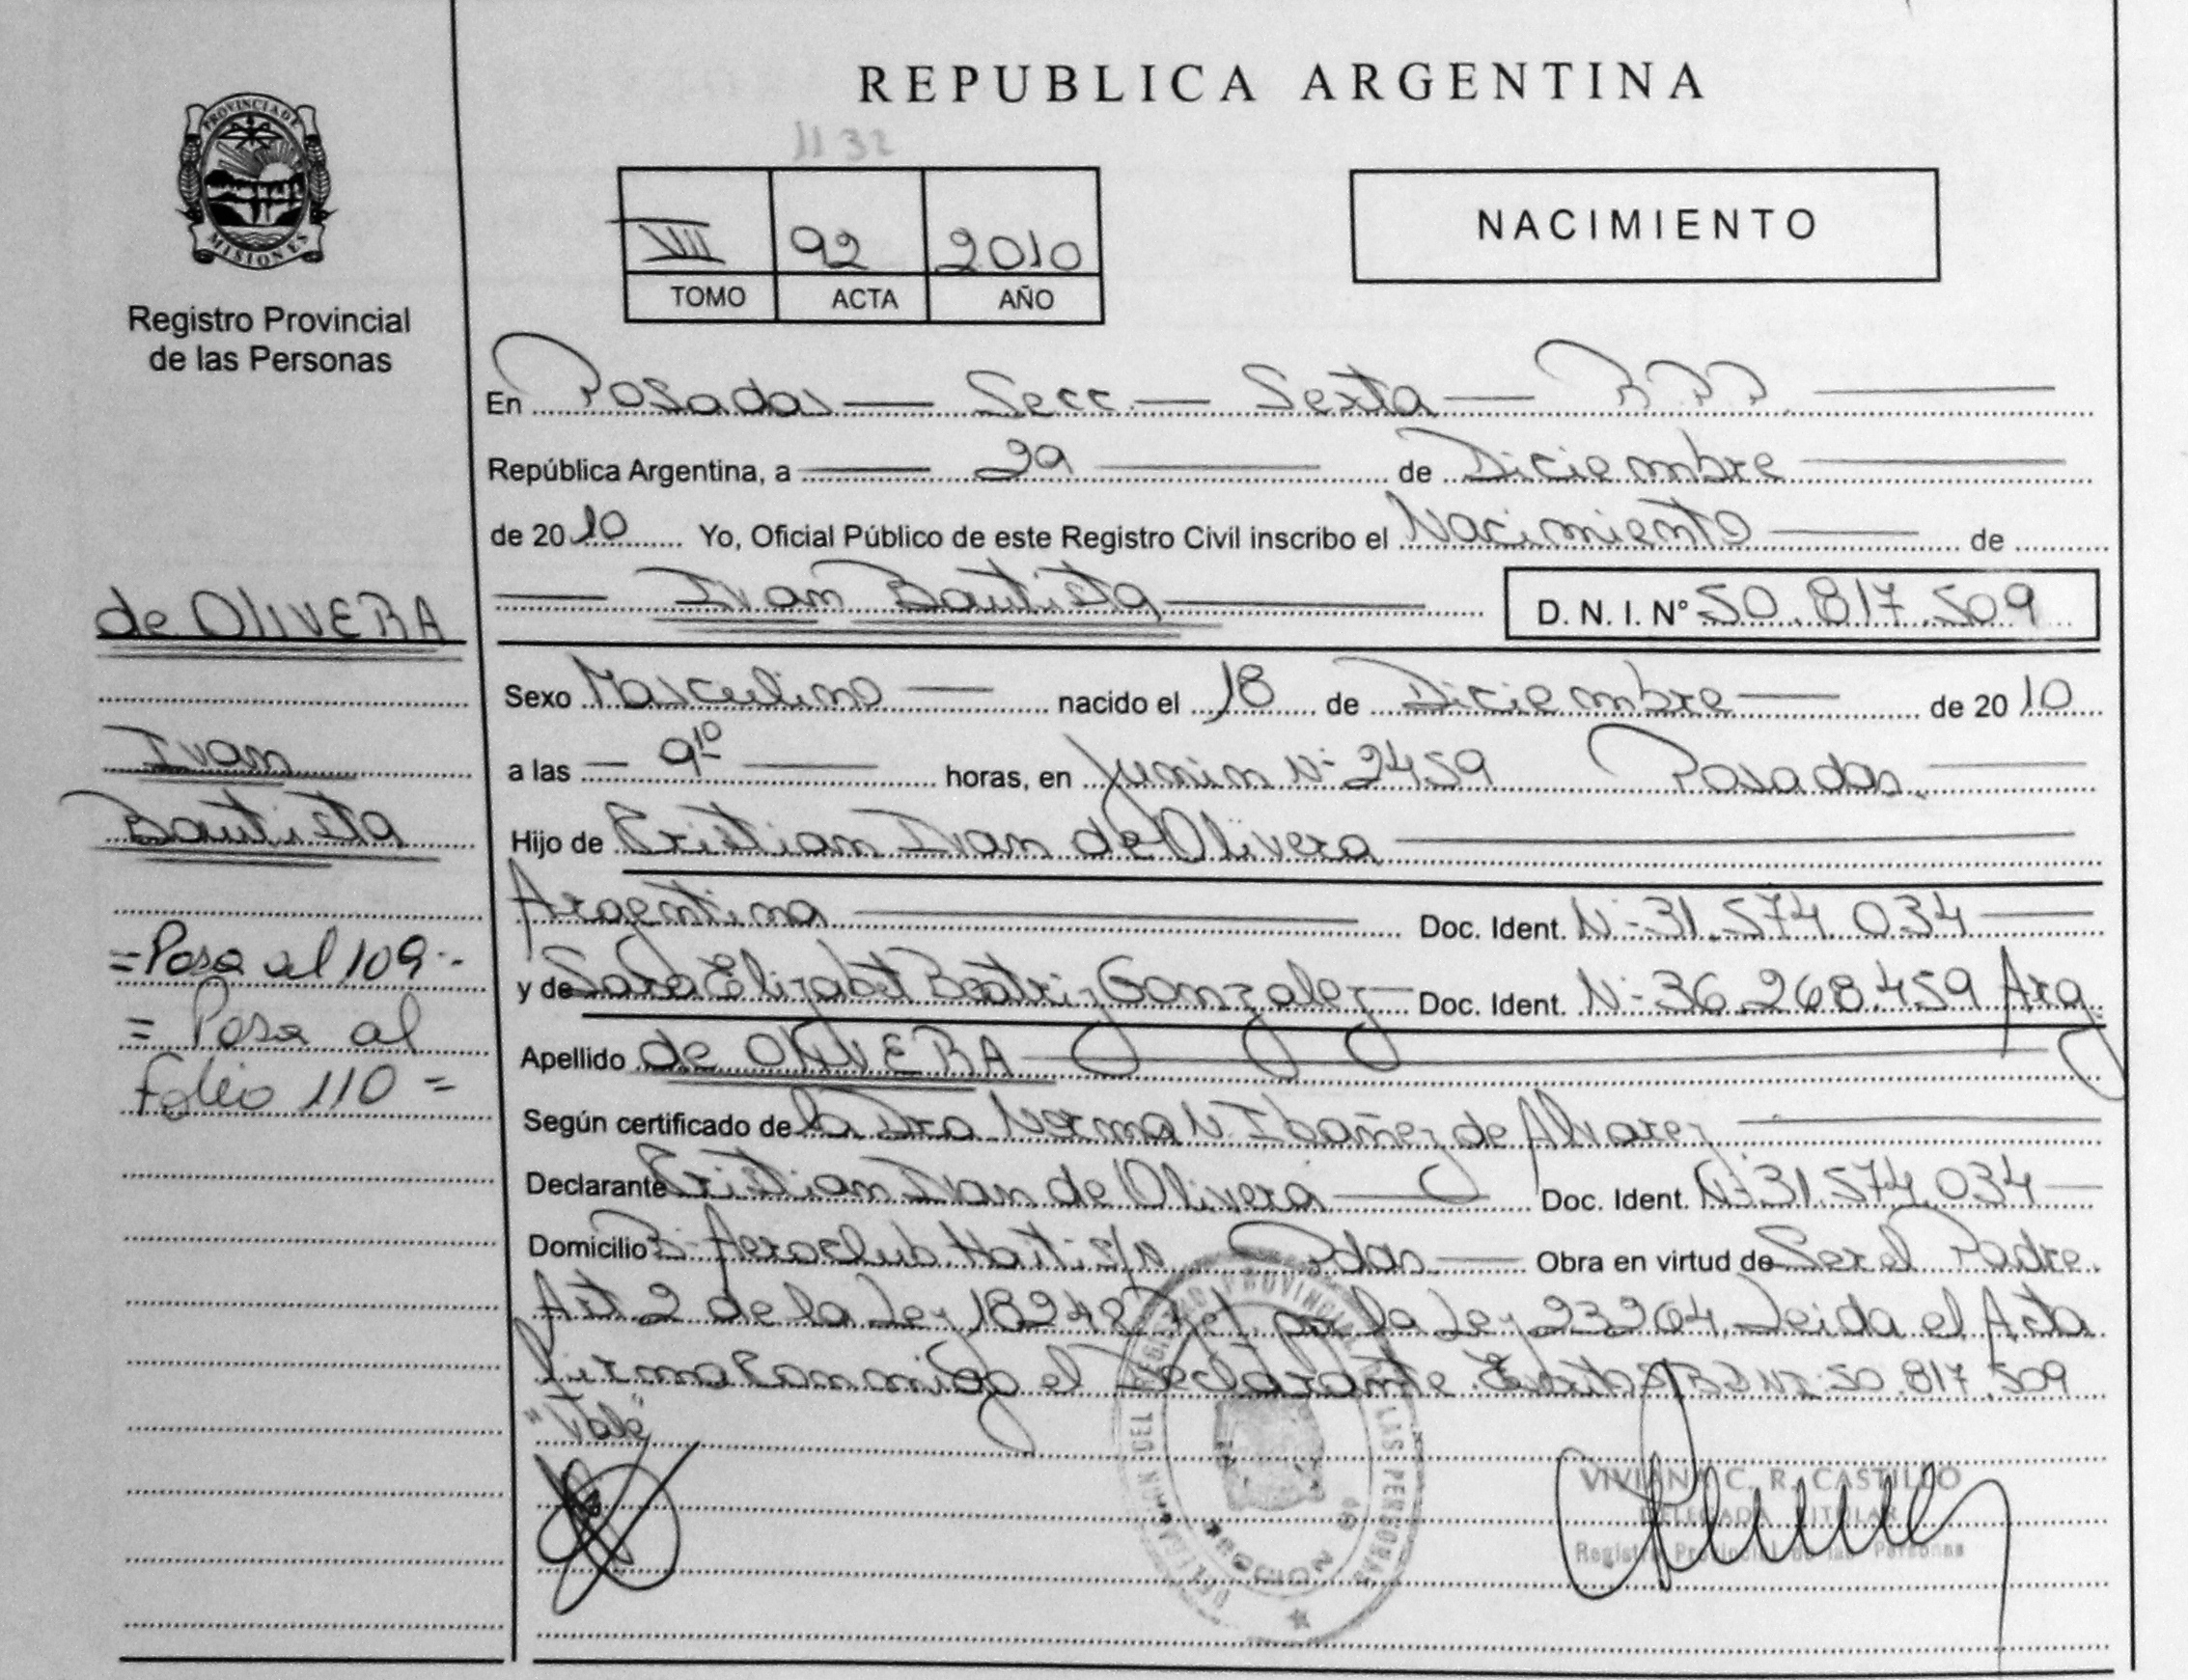 REPUBLICA ARGENTINA
1132
PROVINCIA DE
MISIONES
Registro Provincial
de las Personas
VII 92 2010
TOMO ACTA AÑO
NACIMIENTO
En Posadas — Secc — Sexta — R.P.P.
República Argentina, a 29 de Diciembre
de 2010 Yo, Oficial Público de este Registro Civil inscribo el Nacimiento de
Ivan Bautista D. N. I. N° 50.817.509
Sexo Masculino nacido el 18 de Diciembre de 2010
a las 9 10 horas, en Junin N° 2459 Posadas.
Hijo de Cristian Ivan de Olivera
Argentina Doc. Ident. N° 31.574.034
y de Sara Elizabet Beatriz Gonzalez Doc. Ident. N° 36.268.459 Arg
Apellido de OLIVERA
Según certificado de la Dra Norma N. Ibañez de Alvarez
Declarante Cristian Ivan de Olivera Doc. Ident. N° 31.574.034
Domicilio B° Aeroclub s/n Pdas. Obra en virtud de Ser el Padre.
Art. 2 de la Ley 18248 por la Ley 23264. Leida el Acta
firma conmigo el Declarante. N° 50.817.509
"Vale"
VIVIANA C. R. CASTILLO
DELEGADA TITULAR
Registro Provincial de las Personas
de OLIVERA
Ivan
Bautista
=Pasa al 109--
= Pasa al
folio 110 =